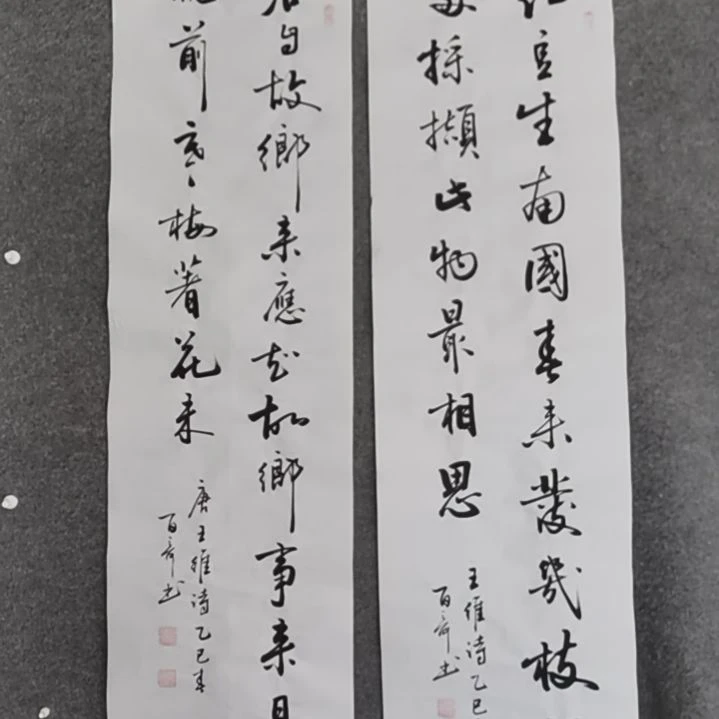 紅豆生南國春來發幾枝
多採擷此物最相思
王維詩乙巳
百奇书
君自故鄉来應知故鄉事来日
窗前寒梅著花未
唐王維詩乙巳春
百奇书